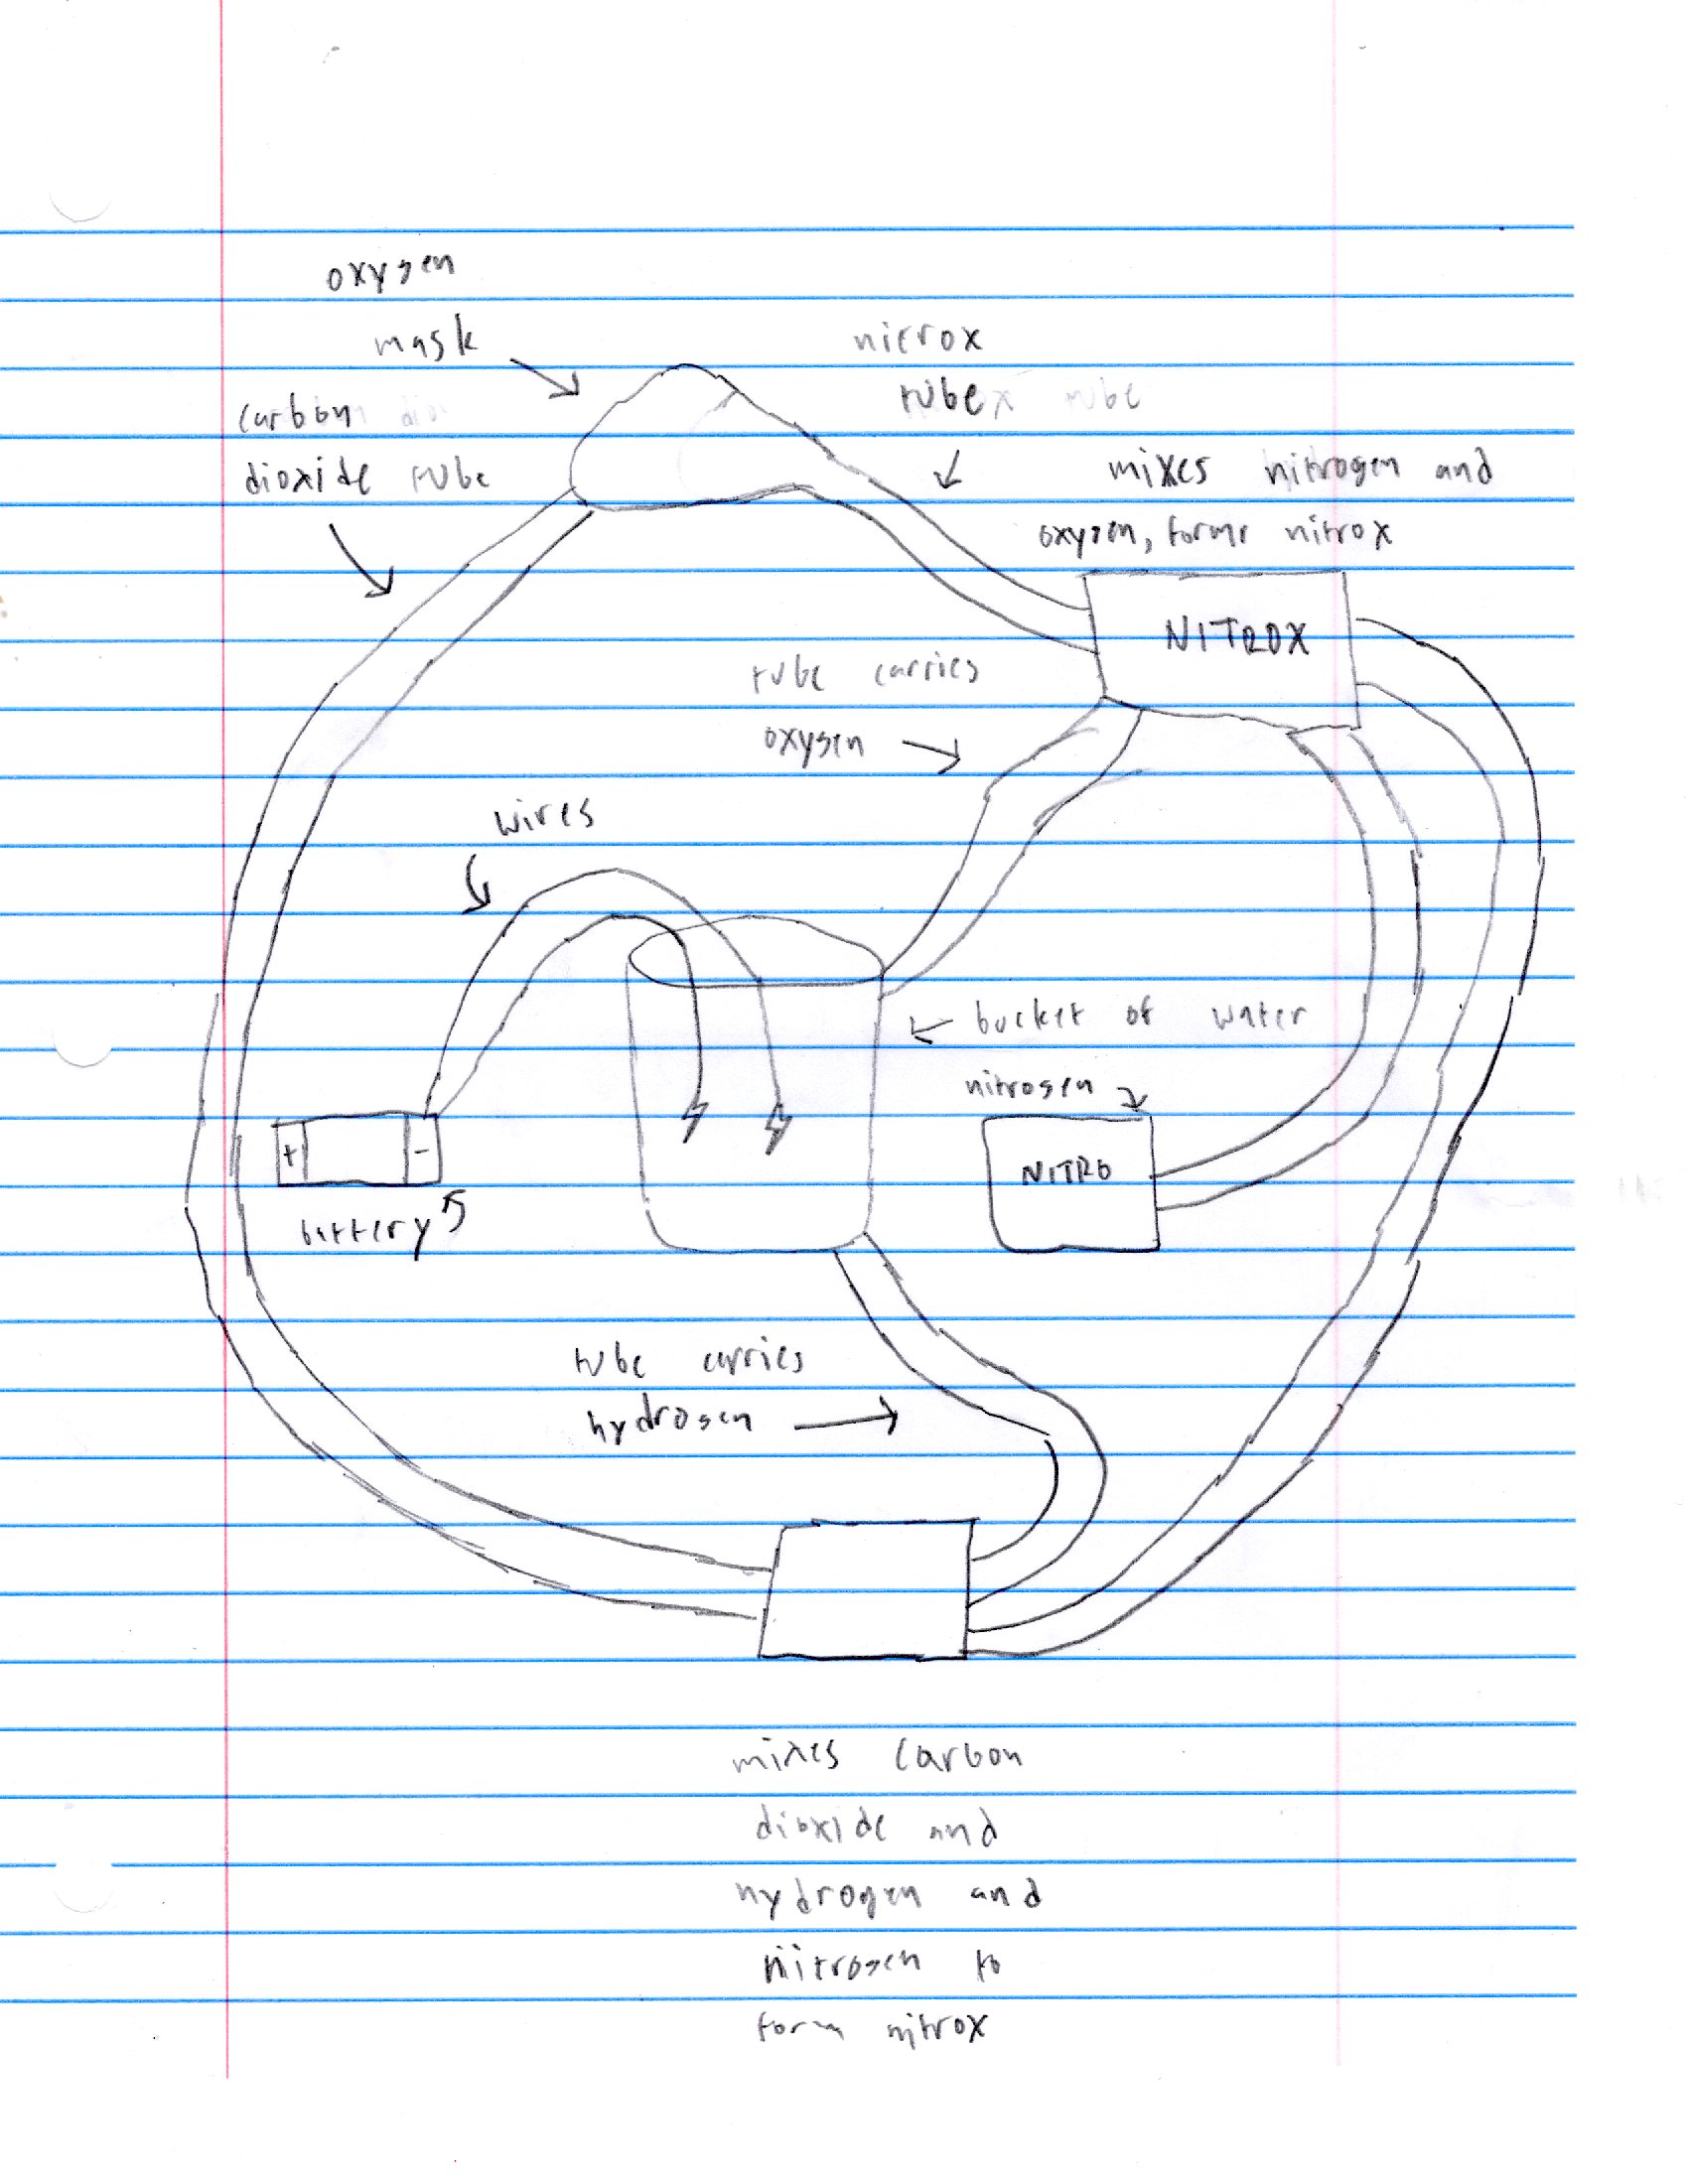 oxygen
mask
nitrox
tube
carbon
dioxide tube
mixes nitrogen and
oxygen, forms nitrox
NITROX
tube carries
oxygen
wires
bucket of water
nitrogen
NITRO
+
-
battery
tube carries
hydrogen
mixes carbon
dioxide and
hydrogen and
nitrogen to
form nitrox